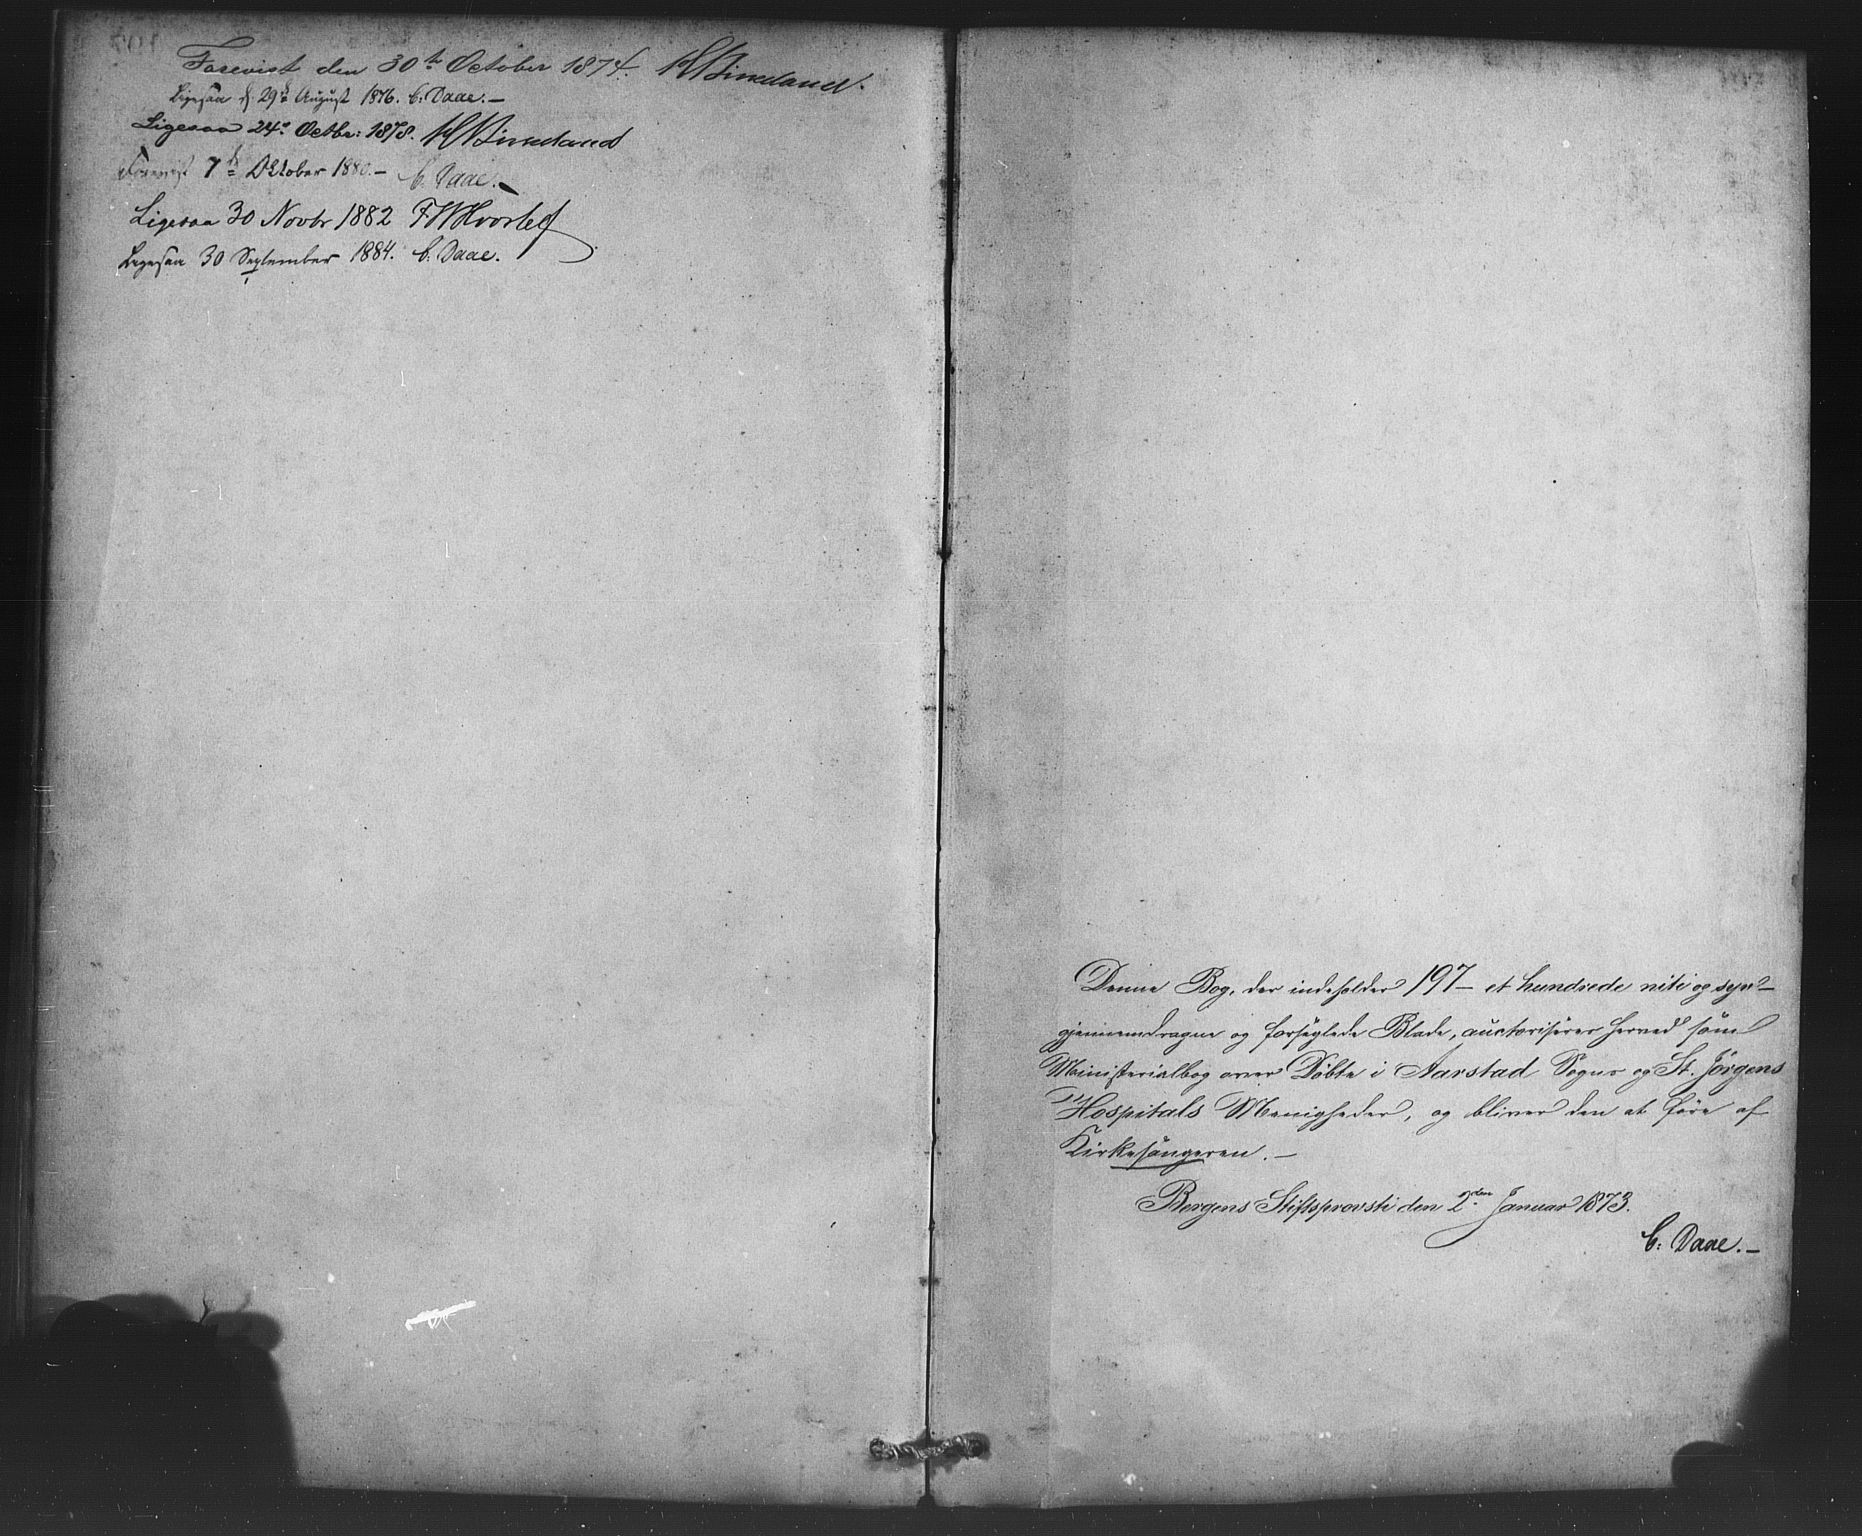 Forevist den 30te October 1874. H Birkeland.
Ligesaa d. 29de August 1876. C: Daae.—
Ligesaa 24de Octbr: 1878. H Birkeland
Forevist 7de Oktober 1880.— C. Daae.—
Ligesaa 30 Novbr 1882 F. W Hvoslef
Ligesaa 30 September 1884. C. Daae.
Denne Bog, der indeholder 197 — et hundrede niti og syv —
gjennemdragne og forseglede Blade, auctoriseres herved som
Ministerialbog over Døbte i Aarstad Sogns og St. Jørgens
Hospitals Menigheder, og bliver den at føre af
Kirkesangeren. —
Bergens Stiftsprovsti den 2den Januar 1873.
C: Daae.—